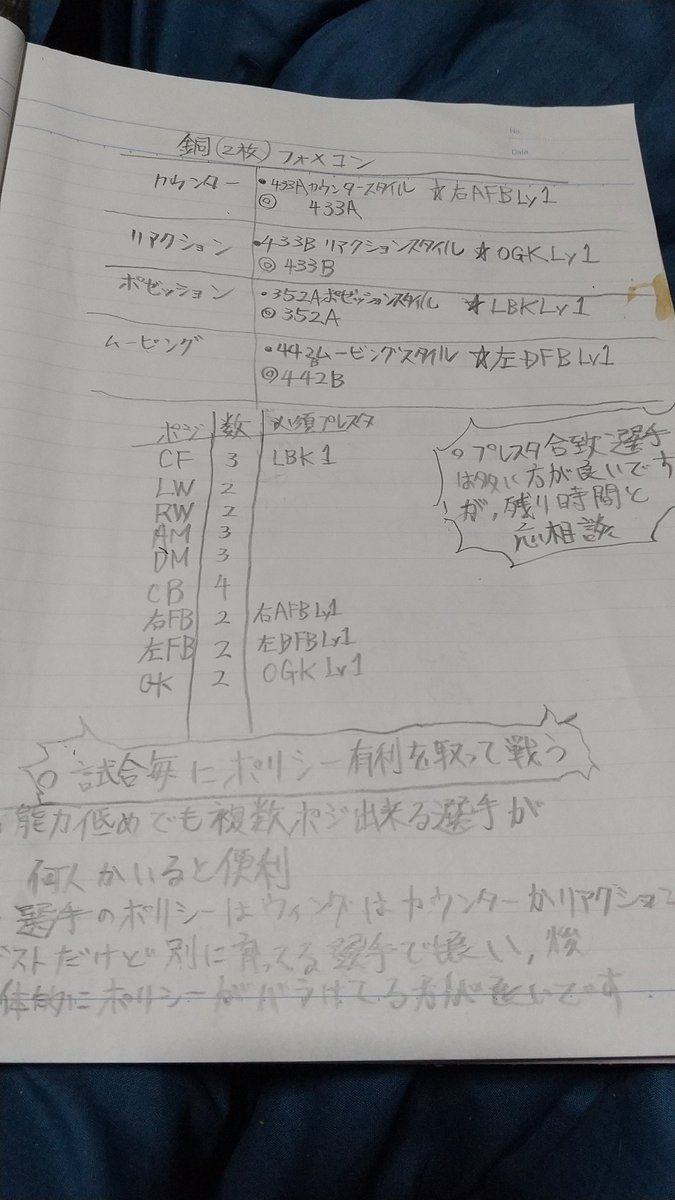 No.
Date
銅(2枚)フォメコン
カウンター ・433Aカウンタースタイル ☆右AFBLv1
◎ 433A
リアクション ・433B リアクションスタイル ☆OGKLv1
◎ 433B
ポゼッション ・352Aポゼッションスタイル ☆LBKLv1
◎352A
ムービング ・442Bムービングスタイル ☆左DFBLv1
◎442B
ポジ 数 必須プレスタ
CF 3 LBK1
LW 2
RW 2
AM 3
DM 3
CB 4
右FB 2 右AFBLv1
左FB 2 左DFBLv1
GK 2 OGKLv1
○プレスタ合致選手
は多い方が良いです
が、残り時間と
応相談
○試合毎にポリシー有利を取って戦う
・能力低めでも複数ポジ出来る選手が
何人かいると便利
・選手のポリシーはウィングはカウンターかリアクション
ベストだけど別に育ってる選手で良い、後
体的にポリシーがバラけてる方が良いです